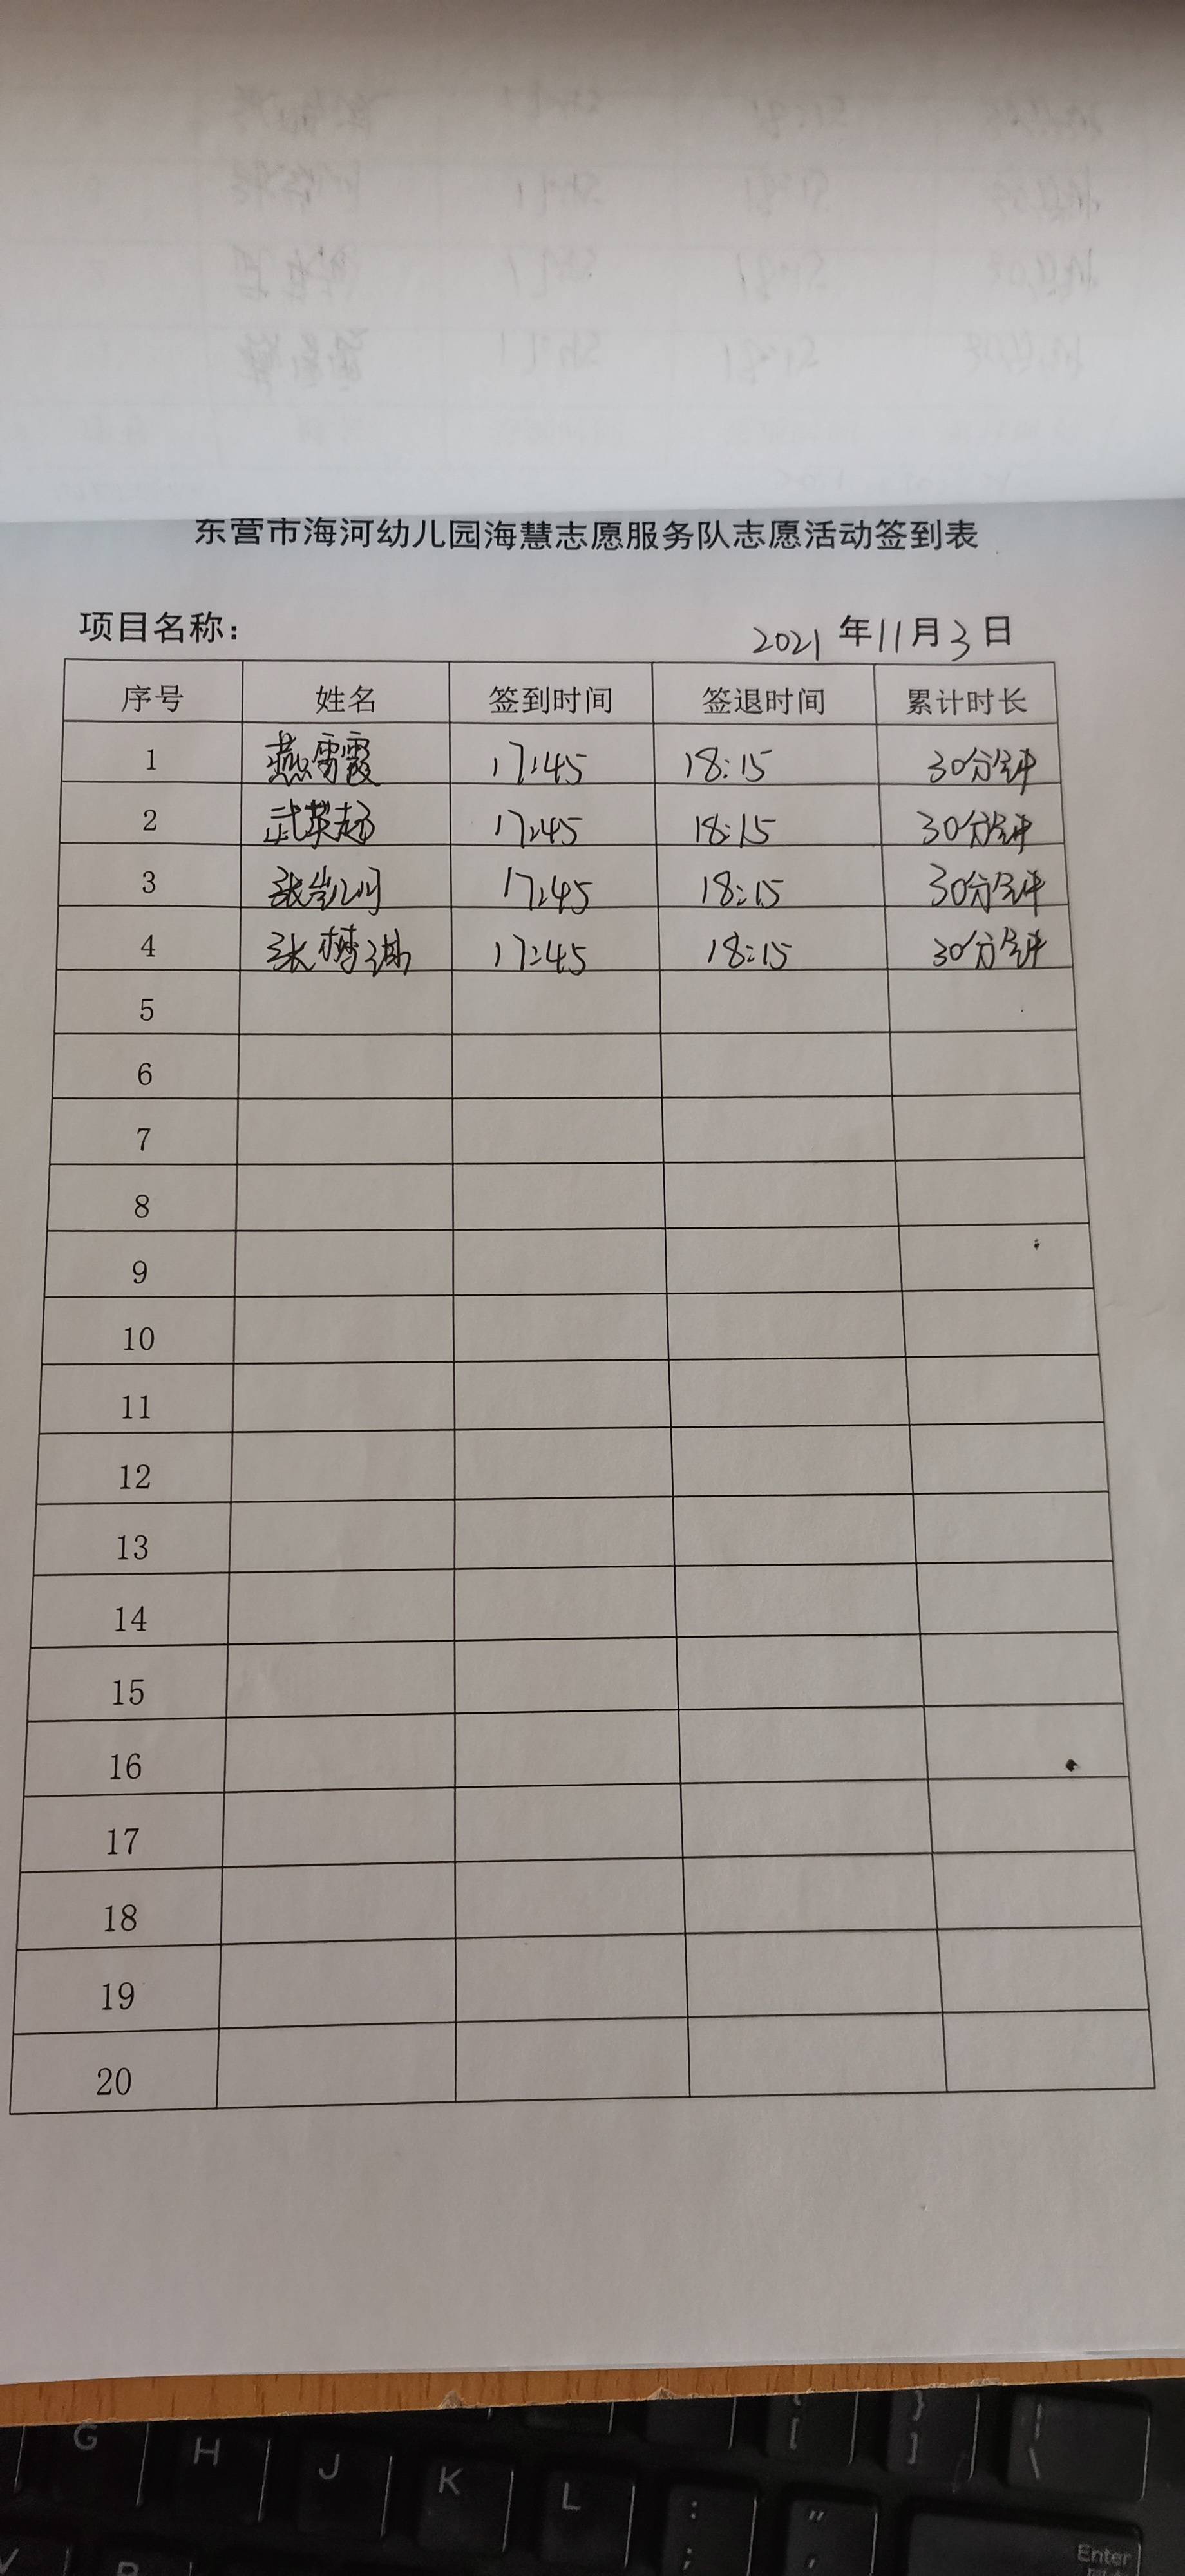 东营市海河幼儿园海慧志愿服务队志愿活动签到表
项目名称: 2021年11月3日
序号 姓名 签到时间 签退时间 累计时长
1 燕雪霞 17:45 18:15 30分钟
2 武英超 17:45 18:15 30分钟
3 张凯 17:45 18:15 30分钟
4 张梦瑶 17:45 18:15 30分钟
5
6
7
8
9
10
11
12
13
14
15
16
17
18
19
20
G H J K L : ; " ' { [ } ] | \
Enter